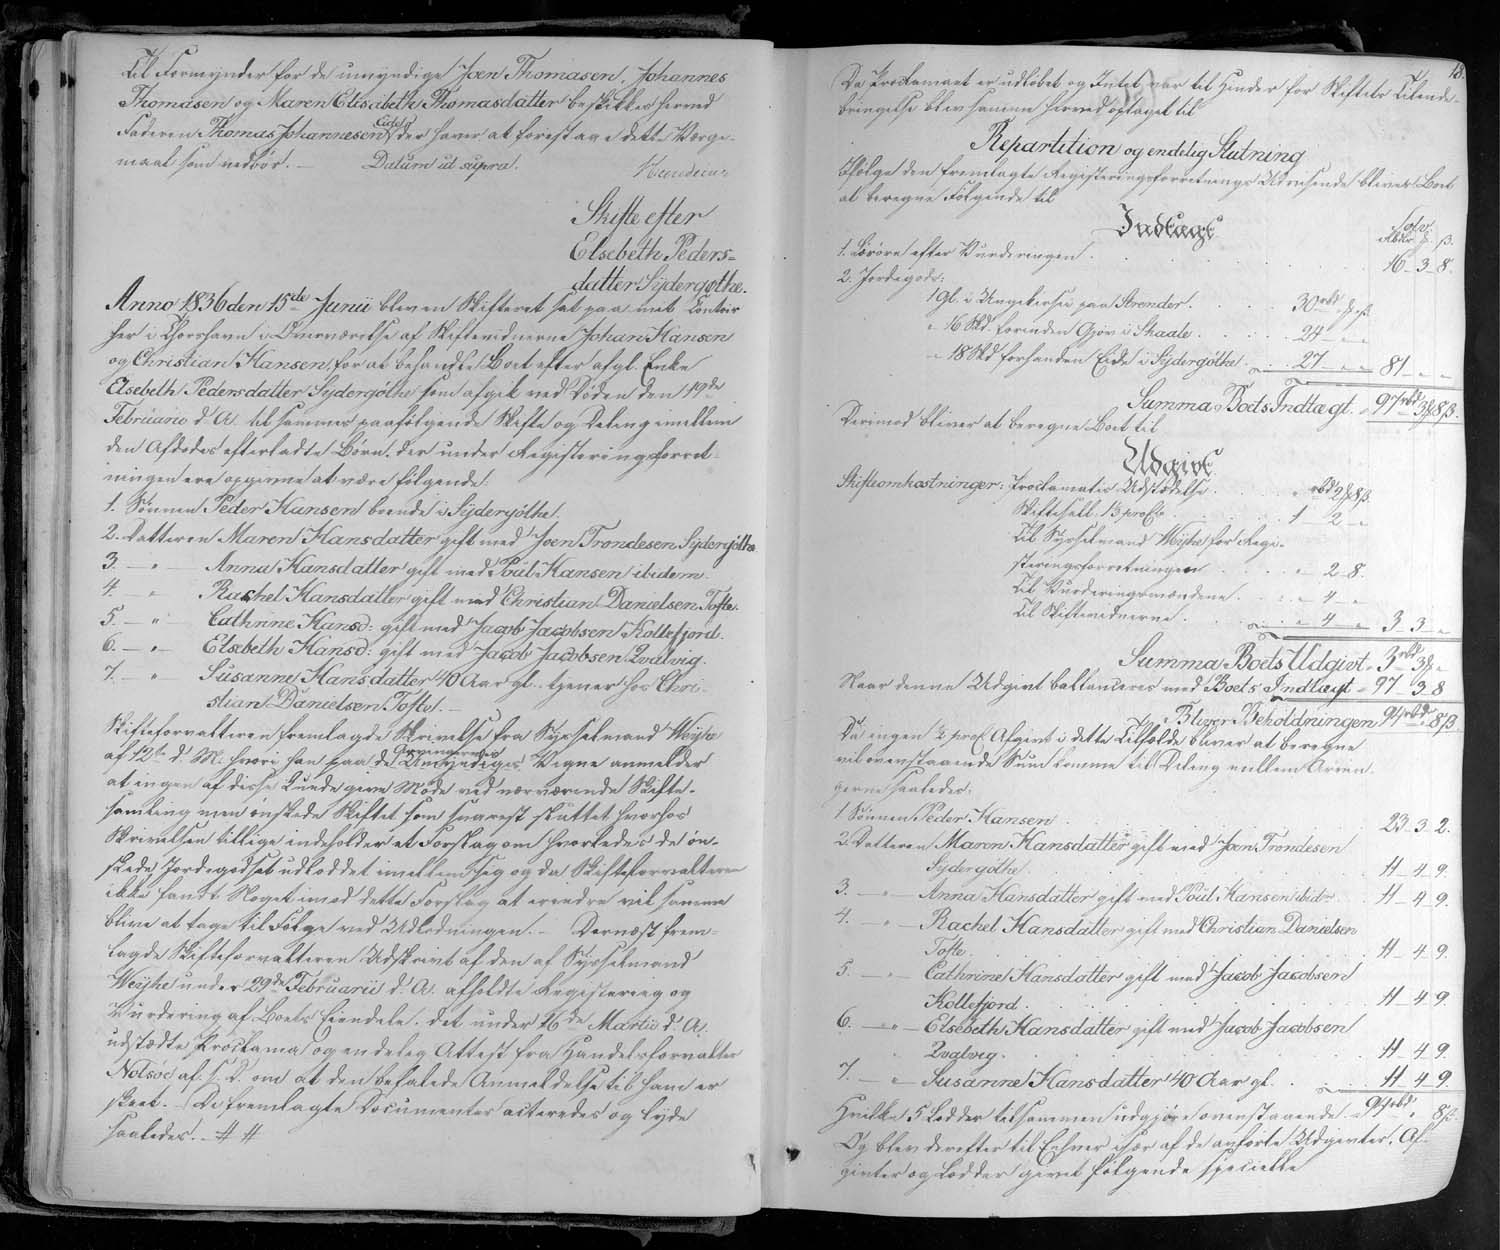 Til Formynder for de umyndige Joen Thomasen, Johannes
Thomasen og Maren Elisabeth Thomasdatter beskikkes herved
Faderen Thomas Johannesen Eide, der haver at forestaae dette Værge-
maal som vedbør. — Datum ut supra.
Skifte efter
Elsebeth Peders-
datter Sydergøthe.
Anno 1836 den 15de Junii bleven Skifteret sat paa mit Contoir
her i Thorshavn i Overværelse af Skiftevidnerne Johan Hansen
og Christian Hansen, for at behandle Boet efter afgl. Enke
Elsebeth Pedersdatter Sydergøthe som afgik ved Døden den 19de
Februario d. A. til sammes paafølgende Skifte og Deling imellem
den Afdødes efterladte Børn, der under Registeringsforret-
ningen ere opgivne at være følgende:
1. Sønnen Peder Hansen boende i Sydergøthe.
2. Datteren Maren Hansdatter gift med Joen Trondesen Sydergøthe
3. — " — Anna Hansdatter gift med Poul Hansen ibidem.
4. — " — Rachel Hansdatter gift med Christian Danielsen Tofte.
5. — " — Cathrine Hansd: gift med Jacob Jacobsen Kollefjord.
6. — " — Elsebeth Hansd: gift med Jacob Jacobsen Qvalvig.
7. — " — Susanne Hansdatter 40 Aar gl. tjener hos Chri-
stian Danielsen Tofte. —
Skifteforvalteren fremlagde Skrivelse fra Sysselmand Weyhe
af 12te d. M. hvori han paa de Arvingernes Umyndiges Vegne anmelder
at ingen af disse kunde give Møde ved nærværende Skifte-
samling men ønskede Skiftet som snarest sluttet hvorhos
Skrivelsen tillige indeholder et Forslag om hvorledes de øn-
skede Jordegodset udloddet imellem sig og da Skifteforvalteren
ikke fandt Noget imod dette Forslag at erindre vil samme
blive at tage til Følge ved Udlodningen. — Dernæst frem-
lagde Skifteforvalteren Udskrivt af den af Sysselmand
Weyhe under 29de Februarii d. A. afholdte Registering og
Vurdering af Boets Eiendele, det under 16de Martii d. A.
udstædte Proclama og endeleg Attest fra Handelsforvalter
Nolsøe af s. D. om at den befalede Anmeldelse til ham er
skeet. — De fremlagte Documenter acteredes og lyde
saaledes. — ## 
18.
Da Proclamaet er udløbet og Intet var til Hinder for Skiftets Tilende-
bringelse blev samme herved optaget til
Repartition og endelig Slutning
Ifølge den fremlagte Registeringsforretnings Udvisende bliver Boet
at beregne Følgende til
Indtægt
Sølv.
Rbdlr. ₰. ß.
1. Løsøre efter Vurderingen . . . 16 — 3 — 8.
2. Jordegods:
1 Gl. i Ungekersee paa Strender. . . 30 rbd " ₰ " ß
" 16 Skd. forinden Gjov i Skaale. . . 24 — " — "
" 18 Skd forhanden Eide i Sydergøthe. . . 27 — " — " 81 — " — "
Summa Boets Indtægt. " 97 rbd 3 ₰ 8 ß.
Derimod bliver at beregne Boet til
Udgivt
Skifteomkostninger: Proclamatis Udstædelse. . . " rbd 2 ₰ 8 ß.
Skiftesall. 1⅓ proCt. . . 1 — 2 — "
Til Sysselmand Weyhe for Regi-
steringsforretningen . . . " — 2 — 8.
Til Vurderingsmændene. . . " — 4 — "
Til Skiftevidnerne. . . " — 4 — " 3 — 3 — "
Summa Boets Udgivt. " 3 rbd 3 ₰ "
Naar denne Udgivt ballanceres med Boets Indtægt " 97 — 3 8
Bliver Beholdningen 94 rbd " 8 ß.
Da ingen ½ proCt Afgivt i dette Tilfælde bliver at beregne
vil ovenstaaende Sum komme til Deling mellem Arvin-
gerne saaledes:
1 Sønnen Peder Hansen . . . 23 — 3 — 2.
2. Datteren Maren Hansdatter gift med Joen Trondesen
Sydergøthe . . . 11 — 4 — 9.
3. — " — Anna Hansdatter gift med Poul Hansen ibid. 11 — 4 — 9.
4. — " — Rachel Hansdatter gift med Christian Danielsen
Tofte . . . 11 — 4 — 9.
5. — " — Cathrine Hansdatter gift med Jacob Jacobsen
Kollefjord. . . 11 — 4 — 9.
6. — " — Elsebeth Hansdatter gift med Jacob Jacobsen
Qvalvig. . . 11 — 4 9.
7. — " — Susanne Hansdatter 40 Aar gl. . . 11 — 4 9.
Hvilke 5 Lodder tilsammen udgjøre ovenstaaende " 94 rbd " 8 ß.
Og blev derefter til Enhver især af de anførte Udgivter, Af-
givter og Lodder givet følgende specielle